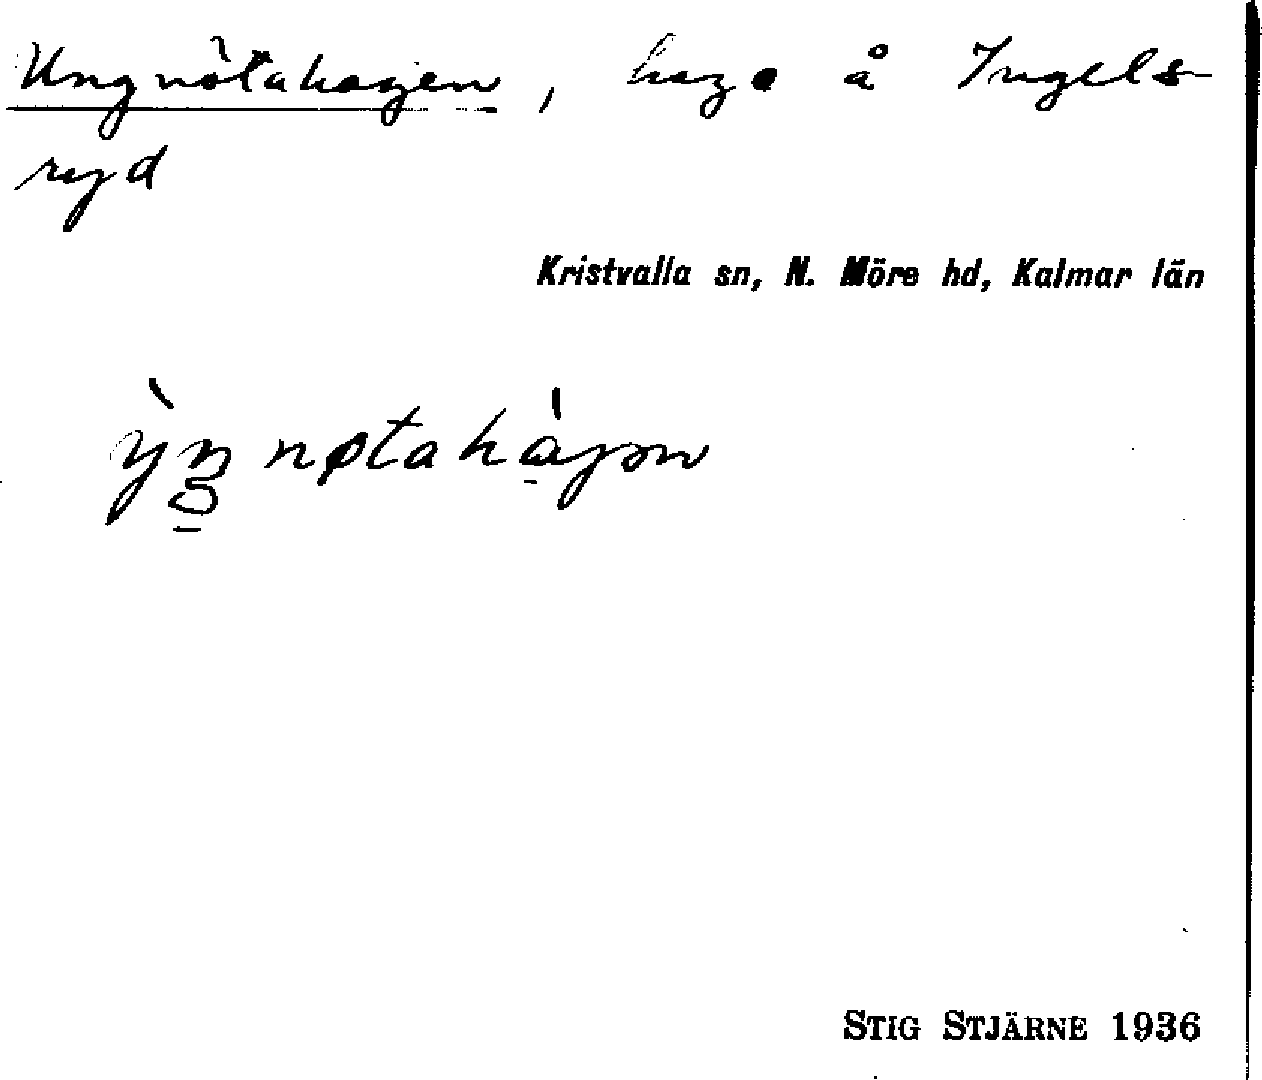 Ungnötahagen, hage å Ingels-
ryd
Kristvalla sn, N. Möre hd, Kalmar län
STIG STJÄRNE 1936